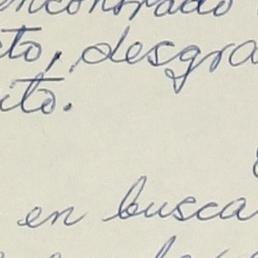 encontrado
to, desgra
ito.
en busca